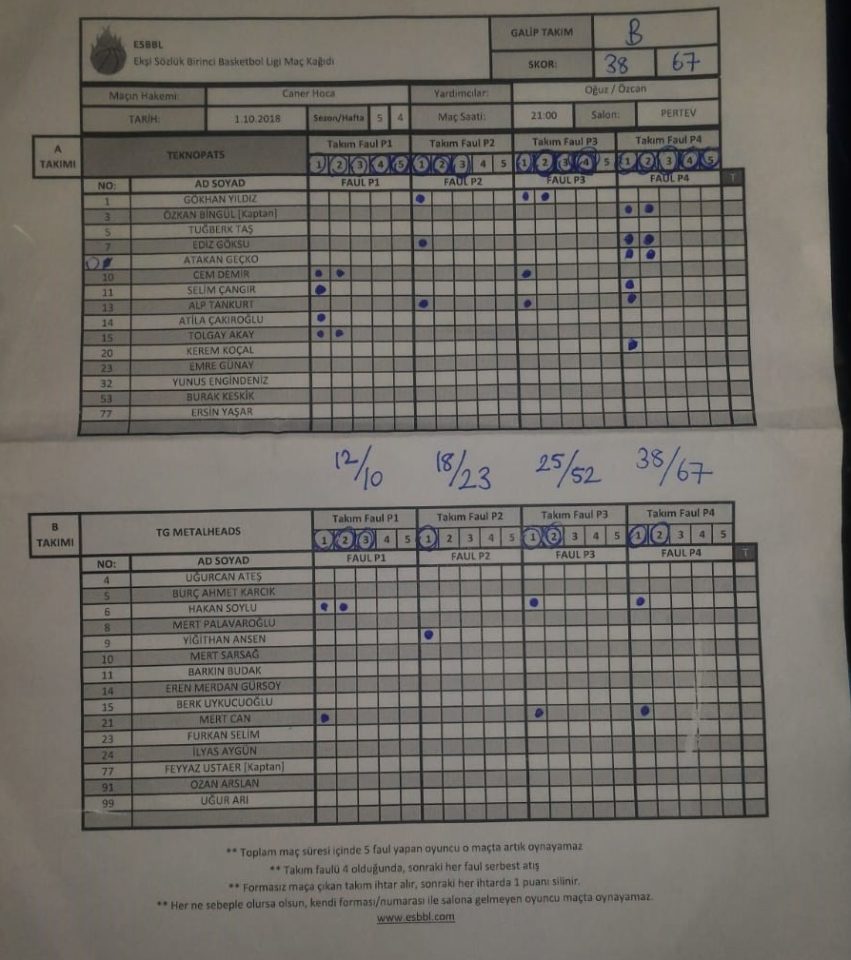 ESBBL
Ekşi Sözlük Birinci Basketbol Ligi Maç Kağıdı
GALİP TAKIM B
SKOR: 38 67
Maçın Hakemi: Caner Hoca Yardımcılar: Oğuz / Özcan
TARİH: 1.10.2018 Sezon/Hafta 5 4 Maç Saati: 21:00 Salon: PERTEV
A TAKIMI TEKNOPATS Takım Faul P1 Takım Faul P2 Takım Faul P3 Takım Faul P4
1 2 3 4 5 1 2 3 4 5 1 2 3 4 5 1 2 3 4 5
NO: AD SOYAD FAUL P1 FAUL P2 FAUL P3 FAUL P4 T
1 GÖKHAN YILDIZ
3 ÖZKAN BİNGÜL [Kaptan]
5 TUĞBERK TAŞ
7 EDİZ GÖKSU
ATAKAN GEÇKO
10 CEM DEMİR
11 SELİM ÇANGIR
13 ALP TANKURT
14 ATİLA ÇAKIROĞLU
15 TOLGAY AKAY
20 KEREM KOÇAL
23 EMRE GÜNAY
32 YUNUS ENGİNDENİZ
53 BURAK KESKİK
77 ERSİN YAŞAR
12/10 18/23 25/52 38/67
B TAKIMI TG METALHEADS Takım Faul P1 Takım Faul P2 Takım Faul P3 Takım Faul P4
1 2 3 4 5 1 2 3 4 5 1 2 3 4 5 1 2 3 4 5
NO: AD SOYAD FAUL P1 FAUL P2 FAUL P3 FAUL P4 T
4 UĞURCAN ATEŞ
5 BURÇ AHMET KARCIK
6 HAKAN SOYLU
8 MERT PALAVAROĞLU
9 YİĞİTHAN ANSEN
10 MERT SARSAĞ
11 BARKIN BUDAK
14 EREN MERDAN GÜRSOY
15 BERK UYKUCUOĞLU
21 MERT CAN
23 FURKAN SELİM
24 İLYAS AYGÜN
77 FEYYAZ USTAER [Kaptan]
91 OZAN ARSLAN
99 UĞUR ARI
** Toplam maç süresi içinde 5 faul yapan oyuncu o maçta artık oynayamaz
** Takım faulü 4 olduğunda, sonraki her faul serbest atış
** Formasız maça çıkan takım ihtar alır, sonraki her ihtarda 1 puanı silinir.
** Her ne sebeple olursa olsun, kendi forması/numarası ile salona gelmeyen oyuncu maçta oynayamaz.
www.esbbl.com